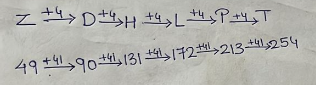 Z +4→ D +4→ H +4→ L +4→ P +4→ T
49 +41→ 90 +41→ 131 +41→ 172 +41→ 213 +41→ 254